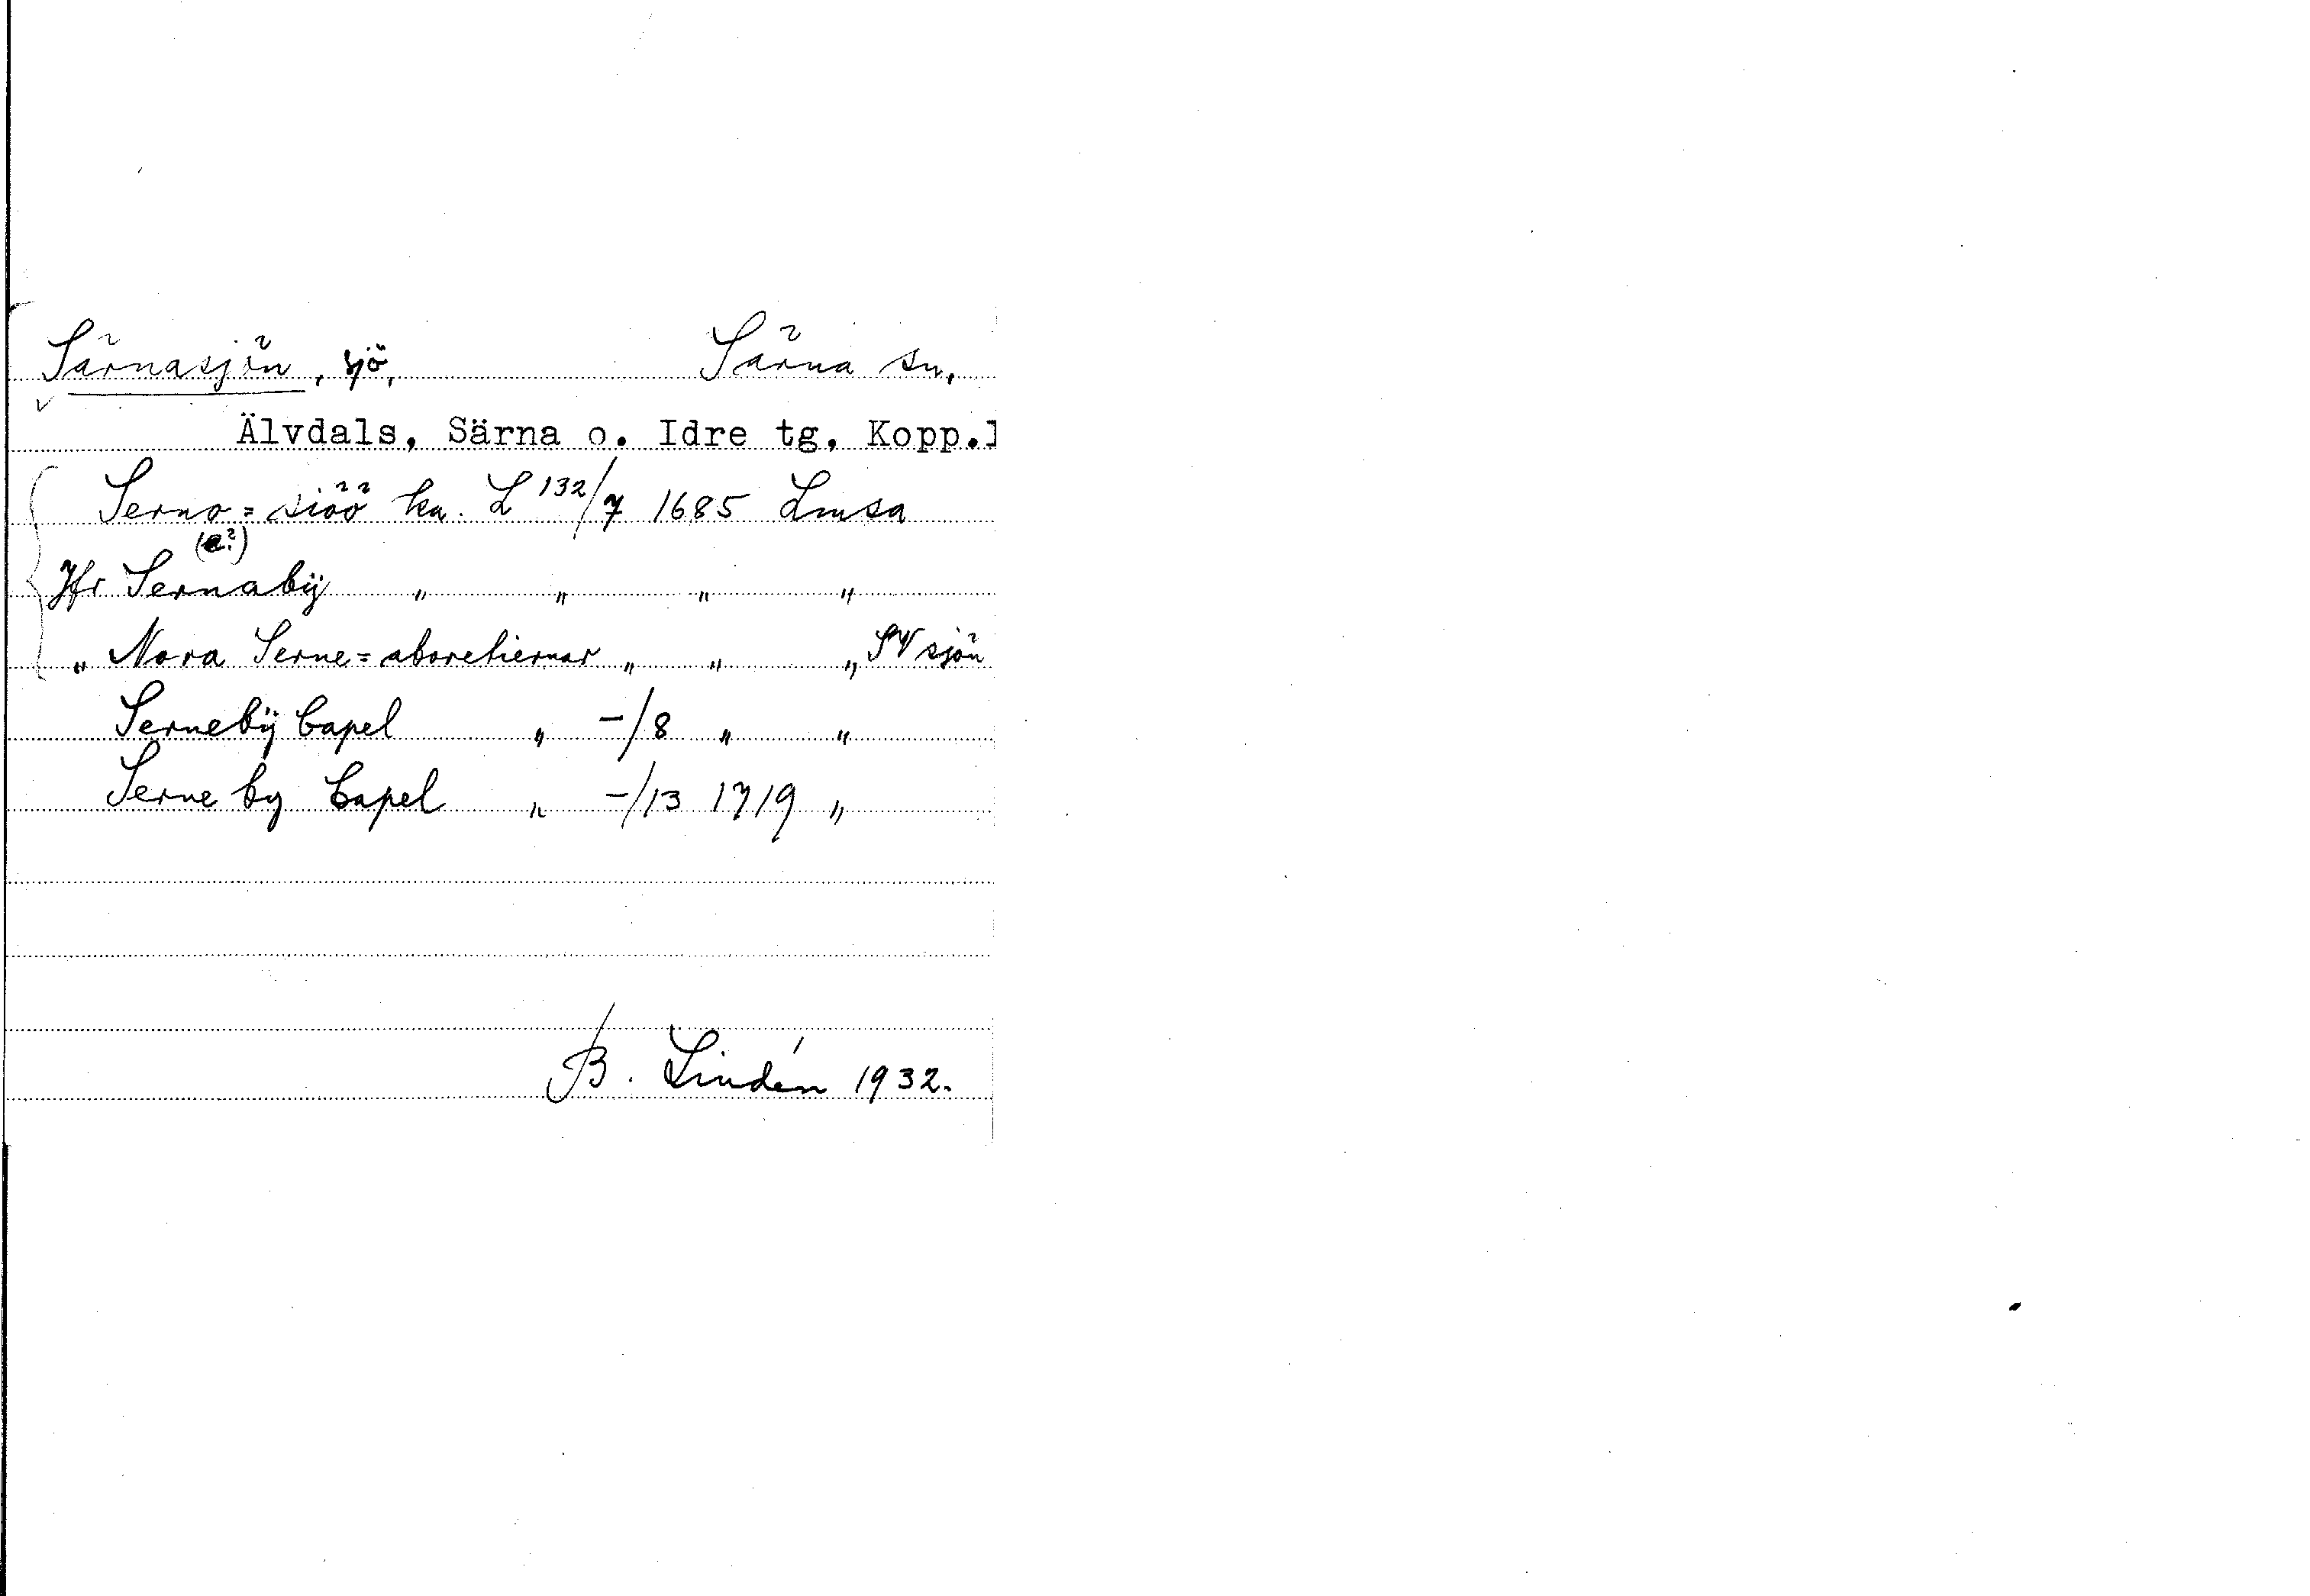 Särnasjön, sjö, Särna sn.
Älvdals, Särna o. Idre tg. Kopp.l
Serno=siöö ka. L 132/7 1685 Lmsa
(a?)
Jfr Sernabÿ " " " "
" Nora Serne=aboretiernar " " " SV sjön
Sernebÿ Capel " -/8 " "
Serne by Capel " -/13 1719 "
B. Lindén 1932.